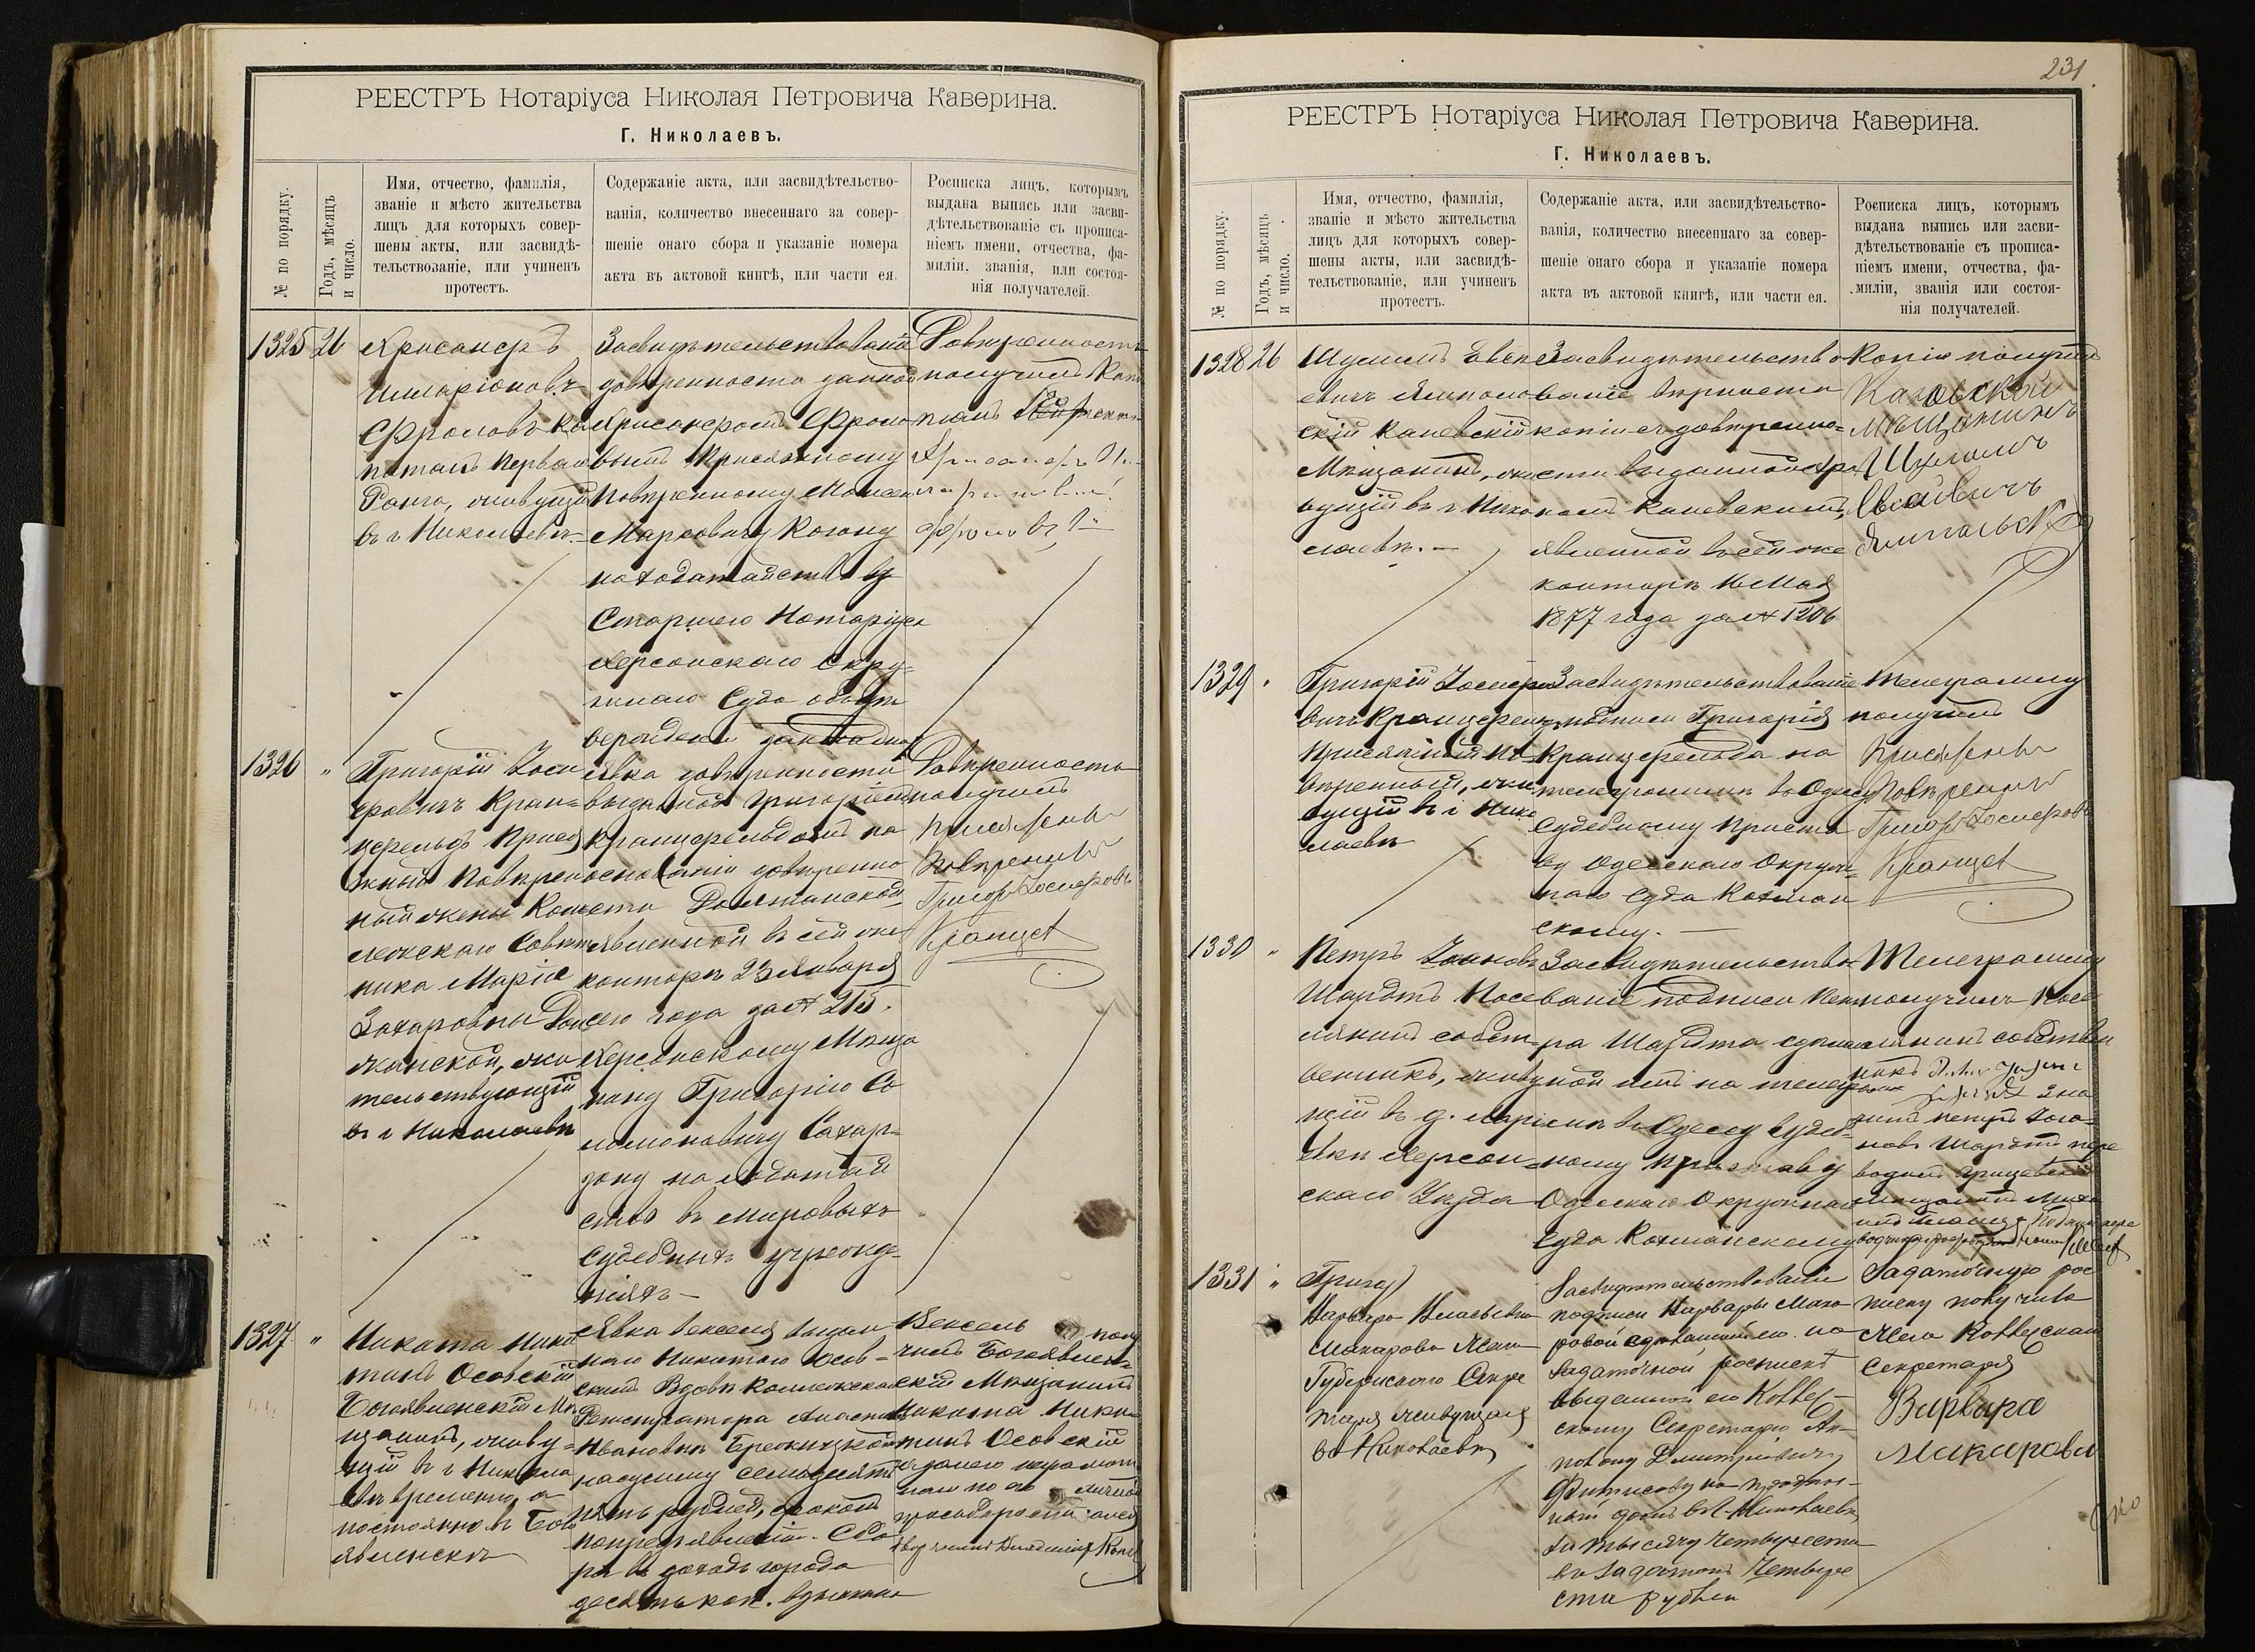 РЕЕСТРЪ Нотаріуса Николая Петровича Каверина.
Г. Николаевъ.
№ по порядку.
Годъ, мѣсяцъ
и число.
Имя, отчество, фамилія,
званіе и мѣсто жительства
лицъ для которыхъ совер-
шены акты, или засвидѣ-
тельствованіе, или учиненъ
протестъ.
Содержаніе акта, или засвидѣтельство-
ванія, количество внесеннаго за совер-
шеніе онаго сбора и указаніе номера
акта въ актовой книгѣ, или части ея.
Росписка лицъ, которымъ
выдана выпись или засви-
дѣтельствованіе съ прописа-
ніемъ имени, отчества, фа-
миліи, званія, или состоя-
нія получателей.
1325
26
Хрисанфъ
Илларіоновъ
Фроловъ Ка
питанъ Перваго
Ранга, живущій
въ г Николаевѣ.
Засвидѣтельствованіе
довѣренности данной
Хрисанфомъ Фроло
вымъ Присяжному
Повѣренному Моисею
Марковичу Когону
на ходатайство у
Старшаго Нотаріуса
Херсонскаго Окру-
жнаго Суда объ ут
вержденіи
Довѣренность
получилъ Капи
танъ
Хрисанфъ Ил
ларіоновъ
Фроловъ 1й
1326
"
Григорій Іоси
фовичъ Кран-
цфельдъ Прися
жный Повѣрен
ный жены Кол
лежскаго Совѣт
ника Маріи
Захаровны Дол
жанской, жи
тельствующій
въ г Николаевѣ
Явка довѣренности
выданной Григоріемъ
Кранцфельдомъ на
основаніи довѣренно
сти Должанской
явленной въ сей же
конторѣ 23 Января
сего года за № 215.
Херсонскому Мѣща
нину Григорію Со
ломоновичу Сахар-
зону на ходатай
ство въ мировыхъ
судебныхъ учрежде-
ніяхъ —
Довѣренность
получилъ
Присяжный
Повѣренный
Григор Іосифовъ
Кранцф
1327
"
Никита Ники
тинъ Осовскій
Богоявленскій Мѣ
щанинъ, живу-
щій въ г Никола
евѣ временно, а
постоянно въ Бого
явленскѣ
Явка векселя выдан
наго Никитою Осов-
скимъ Вдовѣ Коллежскаго
Регистратора Анастасіи
Ивановнѣ
на сумму семьдесятъ
пять рублей, срокомъ
по предъявленіи. Сбо
ра въ доходъ города
десять коп. взыскано
Вексель полу
чилъ Богоявлен-
скій Мѣщанинъ
Никита Ники-
тинъ Осовскій
а за него неграмот
наго по его личной
просьбѣ
231
РЕЕСТРЪ Нотаріуса Николая Петровича Каверина.
Г. Николаевъ.
№ по порядку.
Годъ, мѣсяцъ
и число.
Имя, отчество, фамилія,
званіе и мѣсто жительства
лицъ для которыхъ совер-
шены акты, или засвидѣ-
тельствованіе, или учиненъ
протестъ.
Содержаніе акта, или засвидѣтельство-
ванія, количество внесеннаго за совер-
шеніе онаго сбора и указаніе номера
акта въ актовой книгѣ, или части ея.
Росписка лицъ, которымъ
выдана выпись или засви-
дѣтельствованіе съ прописа-
ніемъ имени, отчества, фа-
миліи, званія или состоя-
нія получателей.
1328
26
Шулимъ Евсе
евичъ Ямполь
скій Каневскій
Мѣщанинъ, жи
вущій въ г Нико
лаевѣ. —
Засвидѣтельство
ваніе вѣрности
копіи съ довѣренно-
сти выданной
Каневскимъ,
явленной въ сей же
конторѣ Мая
1877 года за № 1206
Копію получилъ
Каневскій
Мѣщанинъ
Шулимъ
Евсѣевичъ
Ямпольскій
1329
"
Григорій Іосифо
вичъ Кранцфельдъ
Присяжный По
вѣренный, жи
вущій въ г Нико
лаевѣ
Засвидѣтельствованіе
подписи Григорія
Кранцфельда на
телеграммѣ въ Одессу
Судебному Приста
ву Одесскаго Окруж-
наго Суда Кохман
скому. —
Телеграмму
получилъ
Присяжный
Повѣренный
Григор Іосифовъ
Кранцф
1330
"
Петръ Іоановъ
Шардтъ Посе
лянинъ собст-
венникъ, живу
щій въ д.
Херсон-
скаго Уѣзда
Засвидѣтельство
ваніе подписи Пет
ра Шардта сдѣлан
ной имъ на телеграм
мѣ въ Одессу Судеб-
ному Приставу
Одесскаго Окружнаго
Суда Кохманскому
Телеграмму
получилъ Посе
лянинъ собствен
никъ
Петръ Іоа-
новъ Шардтъ пере
водилъ
Мѣщанинъ
1331
"
Григор
Варвара Власьевна
Макарова Жена
Губернскаго Секре
таря живущая
въ Николаевѣ
Засвидѣтельствованіе
подписи Варвары Мака
ровой сдѣланной ею на
задаточной роспискѣ
выданной ею Коллеж-
скому Секретарю Ан-
тону Дмитріевичу
на проданн-
ный домъ въ г. Николаевѣ,
за тысячу четыреста
въ задатокъ четыре
ста рублей
Задаточную рос
писку получила
Жена Коллежскаго
Секретаря
Варвара
Макарова